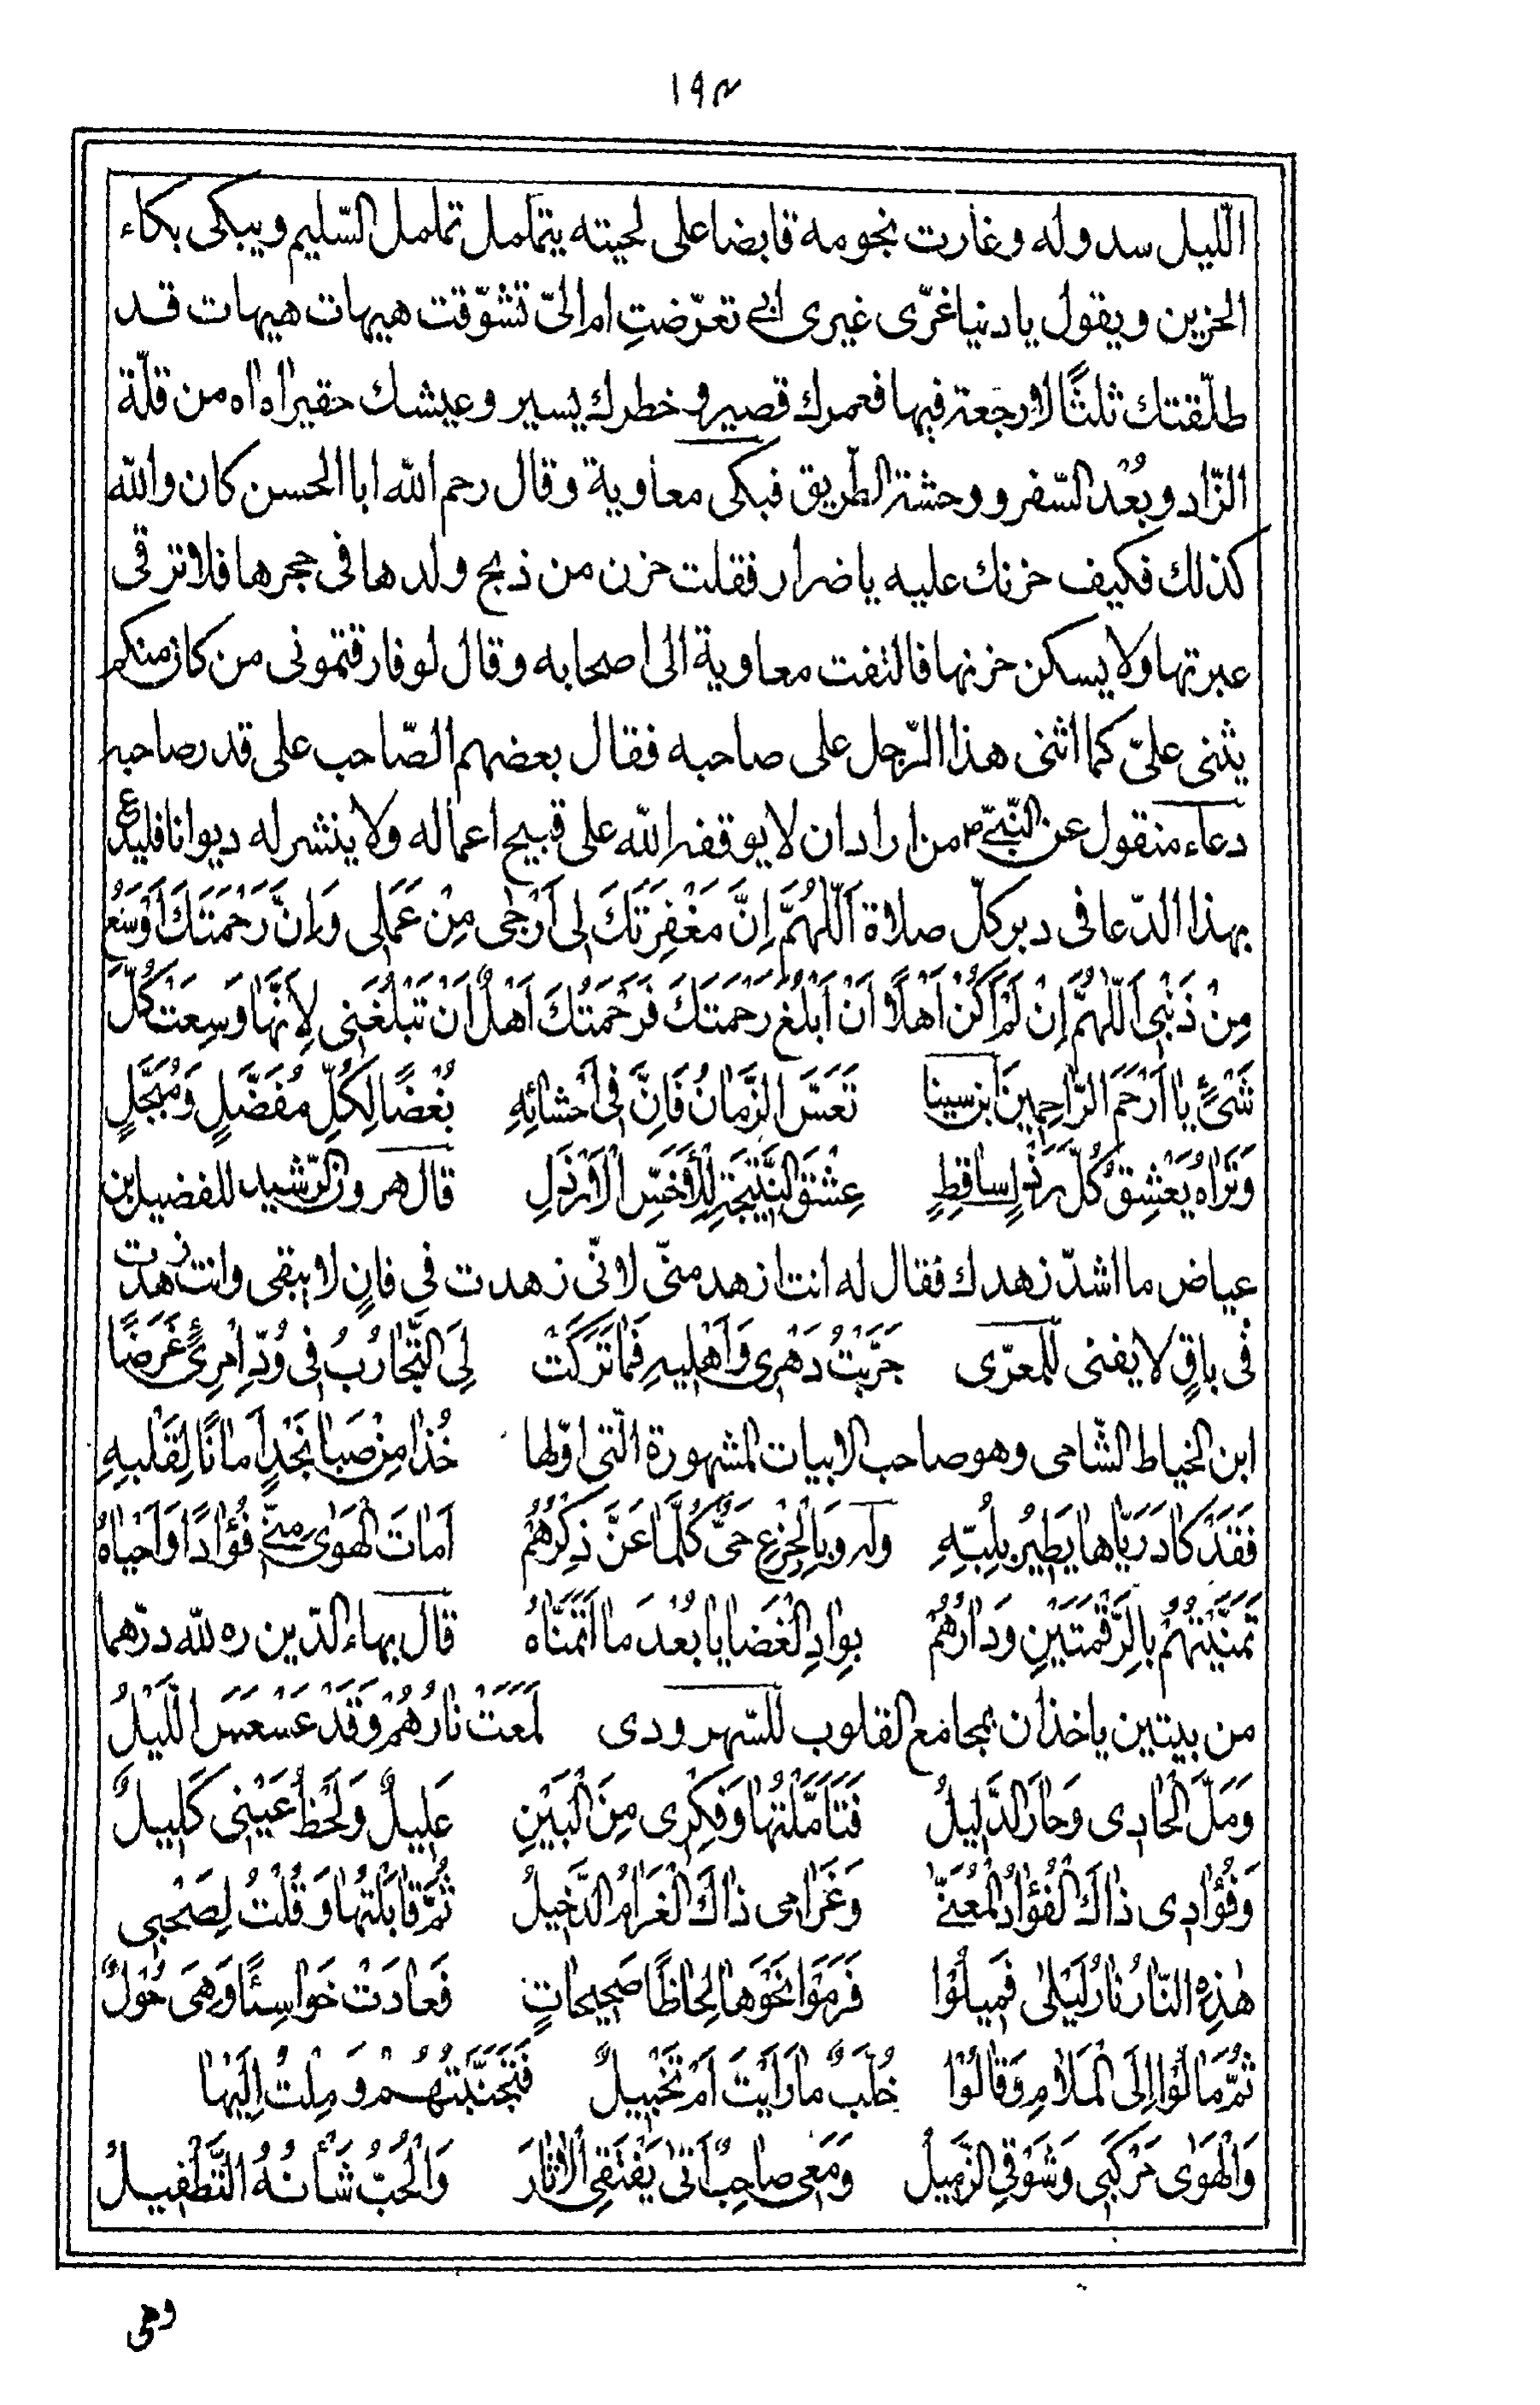 ١٩٣
الّليل سدوله وغارت نجومه قابضا على لحيته يتململ تململ السّليم ويبكى بكاء
الحزين ويقول يا دنيا غرّى غيرى ابى تعرّضتِ ام الىّ تشوّقت هيهات هيهات قد
طلّقتك ثلثًا لا رجعة فيها فعمرك قصير و خطرك يسير وعيشك حقير اه اه من قلّة
الزّاد وبُعْد السّفر ووحشة الطّريق فبكى معاوية وقال رحم الله ابا الحسن كان والله
كذلك فكيف حزنك عليه يا ضرار فقلت حزن من ذبح ولدها فى حجرها فلا ترقى
عبرتها ولا يسكن حزنها فالتفت معاوية الى اصحابه وقال لو فارقتمونى من كان منكم
يثنى علىّ كما اثنى هذا الرّجل على صاحبه فقال بعضهم الصّاحب على قدر صاحبه
دعاء منقول عن النّبىّ ص من اراد ان لا يوقفه الله على قبيح اعماله ولا ينشر له ديوانا فليدع
بهذا الدّعا فى دبر كلّ صلاة اَللّٰهُمَّ اِنَّ مَغْفِرَتَكَ لى اَرْجٰى مِنْ عَمَلى وَاِنَّ رَحْمَتَكَ اَوْسَعُ
مِنْ ذَنْبى اَللّٰهُمَّ اِنْ لَمْ اَكُنْ اَهْلًا اَنْ اَبْلُغَ رَحْمَتَكَ فَرَحْمَتُكَ اَهْلٌ اَنْ تَبْلُغَنى لِاَنَّهٰا وَسِعَتْ كُلَّ
شَىْءٍ يٰا اَرْحَمَ الرّٰاحِمينَ ابن سينا تَعَسَ الزَّمٰانُ فَاِنَّ فى اَحْشٰائِهِ بُغْضًا لِكُلِّ مُفَضَّلٍ وَمُبَجَّلٍ
وَتَرٰاهُ يَعْشِقُ كُلَّ رَذْلٍ سٰاقِطٍ عِشْقَ النَّتيجَةِ لِلْاَخَسِّ الْاَرْذَلِ قال هرون الرّشيد للفضيل بن
عياض ما اشدّ زهدك فقال له انت ازهد منّى لانّى زهدت فى فانٍ لا يبقى وانت زهدت
فى باقٍ لا يفنى للمعرّى جَرَّبْتُ دَهْرى وَاَهْليهِ فَمٰا تَرَكَتْ لِىَ التَّجٰارُبُ فى وُدِّ امْرِئٍ غَرَضًا
ابن الخياط الشّامى وهو صاحب الابيات المشهورة الّتى اوّلها خُذٰا مِنْ صَبٰا نَجْدٍ اَمٰانًا لِقَلْبِهِ
فَقَدْ كٰادَ رَيّٰاهٰا يَطيرُ بِلُبِّهِ وله وَبِالْجِزْعِ حَىٌّ كُلَّمٰا عَنَّ ذِكْرُهُمْ اَمٰاتَ الْهَوٰى مِنّى فُؤٰادًا وَاَحْيٰاهُ
تَمَنَّيْتُهُمْ بِالرَّقْمَتَيْنِ وَدٰارُهُمْ بِوٰادِ الْغَضٰا يٰا بُعْدَ مٰا اَتَمَنّٰاهُ قال بهاء الدّين ره لله درّهما
من بيتين ياخذان بمجامع القلوب للسّهرودى لَمَعَتْ نٰارُهُمْ وَقَدْ عَسْعَسَ الَّليْلُ
وَمَلَّ الْحٰادى وَحٰارَ الدَّليلُ فَتَاَمَّلْتُهٰا وَفِكْرى مِنَ الْبَيْنِ عَليلٌ وَلَحْظُ عَيْنى كَليلٌ
وَفُؤٰادى ذٰاكَ الْفُؤٰادُ الْمُعَنّٰى وَغَرٰامى ذٰاكَ الْغَرٰامُ الدَّخيلُ ثُمَّ قٰابَلْتُهٰا وَقُلْتُ لِصَحْبى
هٰذِهِ النّٰارُ نٰارُ لَيْلٰى فَميلُوْا فَرَمَوْا نَحْوَهٰا لِحٰاظًا صَحيحٰاتٍ فَعٰادَتْ خَوٰاسِئًا وَهِىَ حُوْلٌ
ثُمَّ مٰالُوْا اِلَى الْمَلٰامِ وَقٰالُوْا خُلَّبٌ مٰا رَاَيْتَ اَمْ تَخْييلٌ فَتَجَنَّبْتُهُمْ وَمِلْتُ اِلَيْهٰا
وَالْهَوٰى مَرْكَبى وَشَوْقِى الزَّميلُ وَمَعى صٰاحِبٌ اَتٰى يَقْتَفِى الْاٰثٰارَ وَالْحُبُّ شَأْنُهُ التَّطْفيلُ
وهى